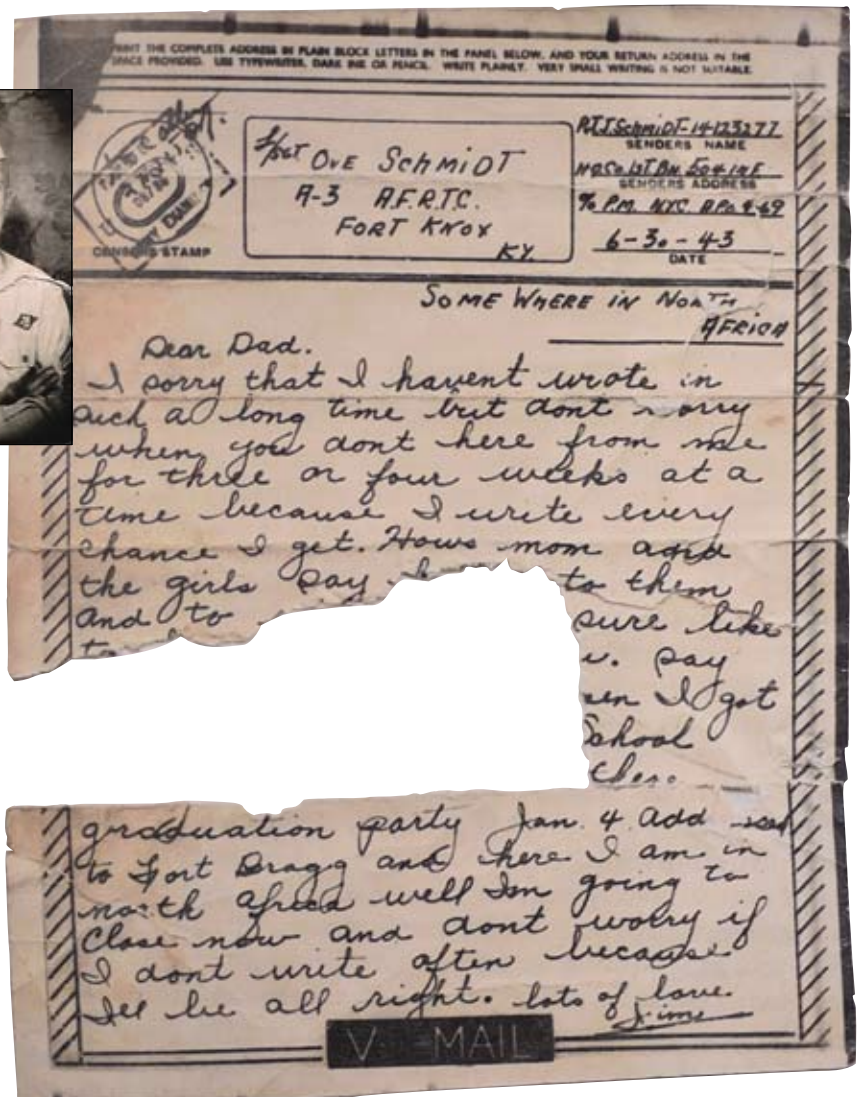 PRINT THE COMPLETE ADDRESS IN PLAIN BLOCK LETTERS IN THE PANEL BELOW, AND YOUR RETURN ADDRESS IN THE
SPACE PROVIDED. USE TYPEWRITER, DARK INK OR PENCIL. WRITE PLAINLY. VERY SMALL WRITING IS NOT SUITABLE.
CENSOR'S STAMP
S/SGT OVE SCHMIDT
A-3 A.F.R.T.C.
FORT KNOX
KY.
PVT J. SCHMIDT-14123277
SENDERS NAME
HQ Co. 1ST BN. 504 INF
SENDERS ADDRESS
% P.M. NYC. APO. 469
6-30-43
DATE
SOME WHERE IN NORTH
AFRICA
Dear Dad.
I sorry that I havent wrote in
such a long time but dont worry
when you dont here from me
for three or four weeks at a
time because I write every
chance I get. Hows mom and
the girls say to them
and to sure like
say
I got
School
graduation party Jan. 4 add
to Fort Bragg and here I am in
north Africa well Im going to
close now and dont worry if
I dont write often because
Ill be all right. lots of love.
Jim
V MAIL